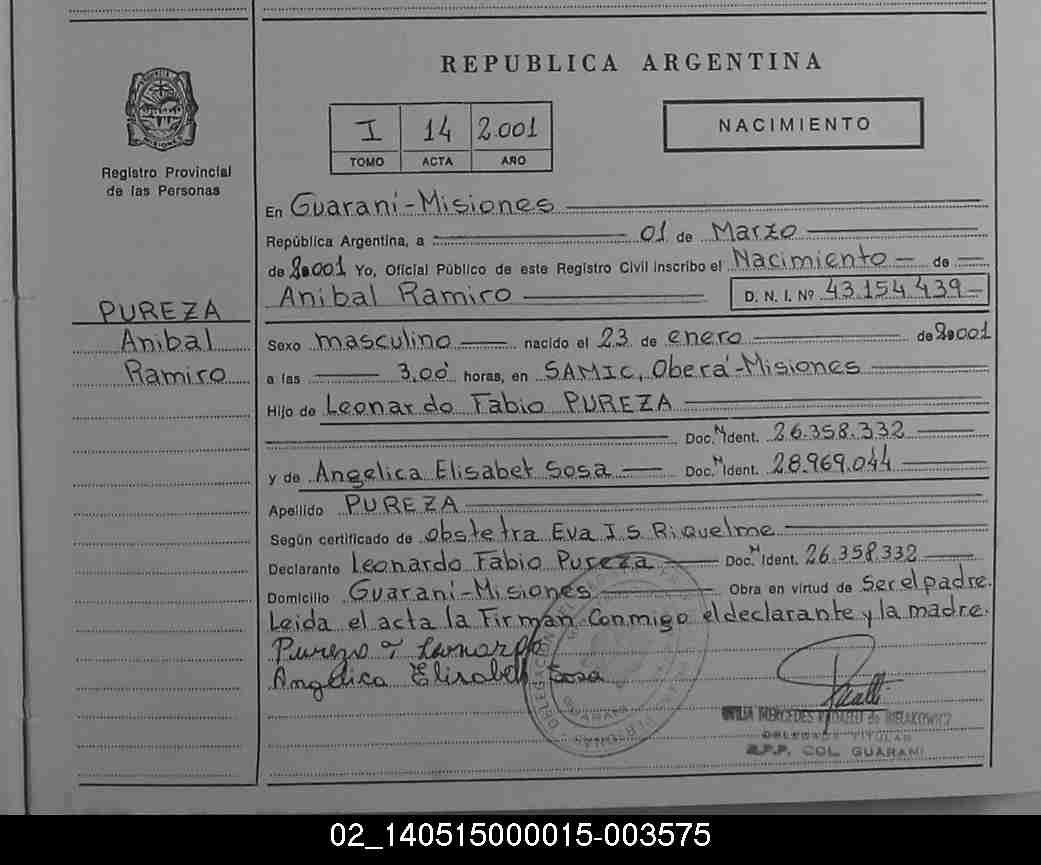 REPUBLICA ARGENTINA
I 14 2.001
TOMO ACTA AÑO
NACIMIENTO
Registro Provincial
de las Personas
En Guaraní-Misiones
República Argentina, a 01 de Marzo
de 2.001 Yo, Oficial Público de este Registro Civil inscribo el Nacimiento de
Anibal Ramiro D. N. I. Nº 43.154.439
PUREZA
Anibal
Ramiro
Sexo masculino nacido el 23 de enero de 2.001
a las 3,00 horas, en SAMIC, Oberá-Misiones
Hijo de Leonardo Fabio PUREZA
Doc. N Ident. 26.358.332
y de Angelica Elisabet Sosa Doc. N Ident. 28.969.044
Apellido PUREZA
Según certificado de obstetra Eva I S Riquelme
Declarante Leonardo Fabio Pureza Doc. N Ident. 26.358.332
Domicilio Guaraní-Misiones Obra en virtud de Ser el padre.
Leida el acta la Firman Conmigo el declarante y la madre.
Pureza Leonardo
Angélica Elisabet Sosa
MERCEDES de
DELEGADA TITULAR
R.P.P. COL. GUARANI
02_140515000015-003575